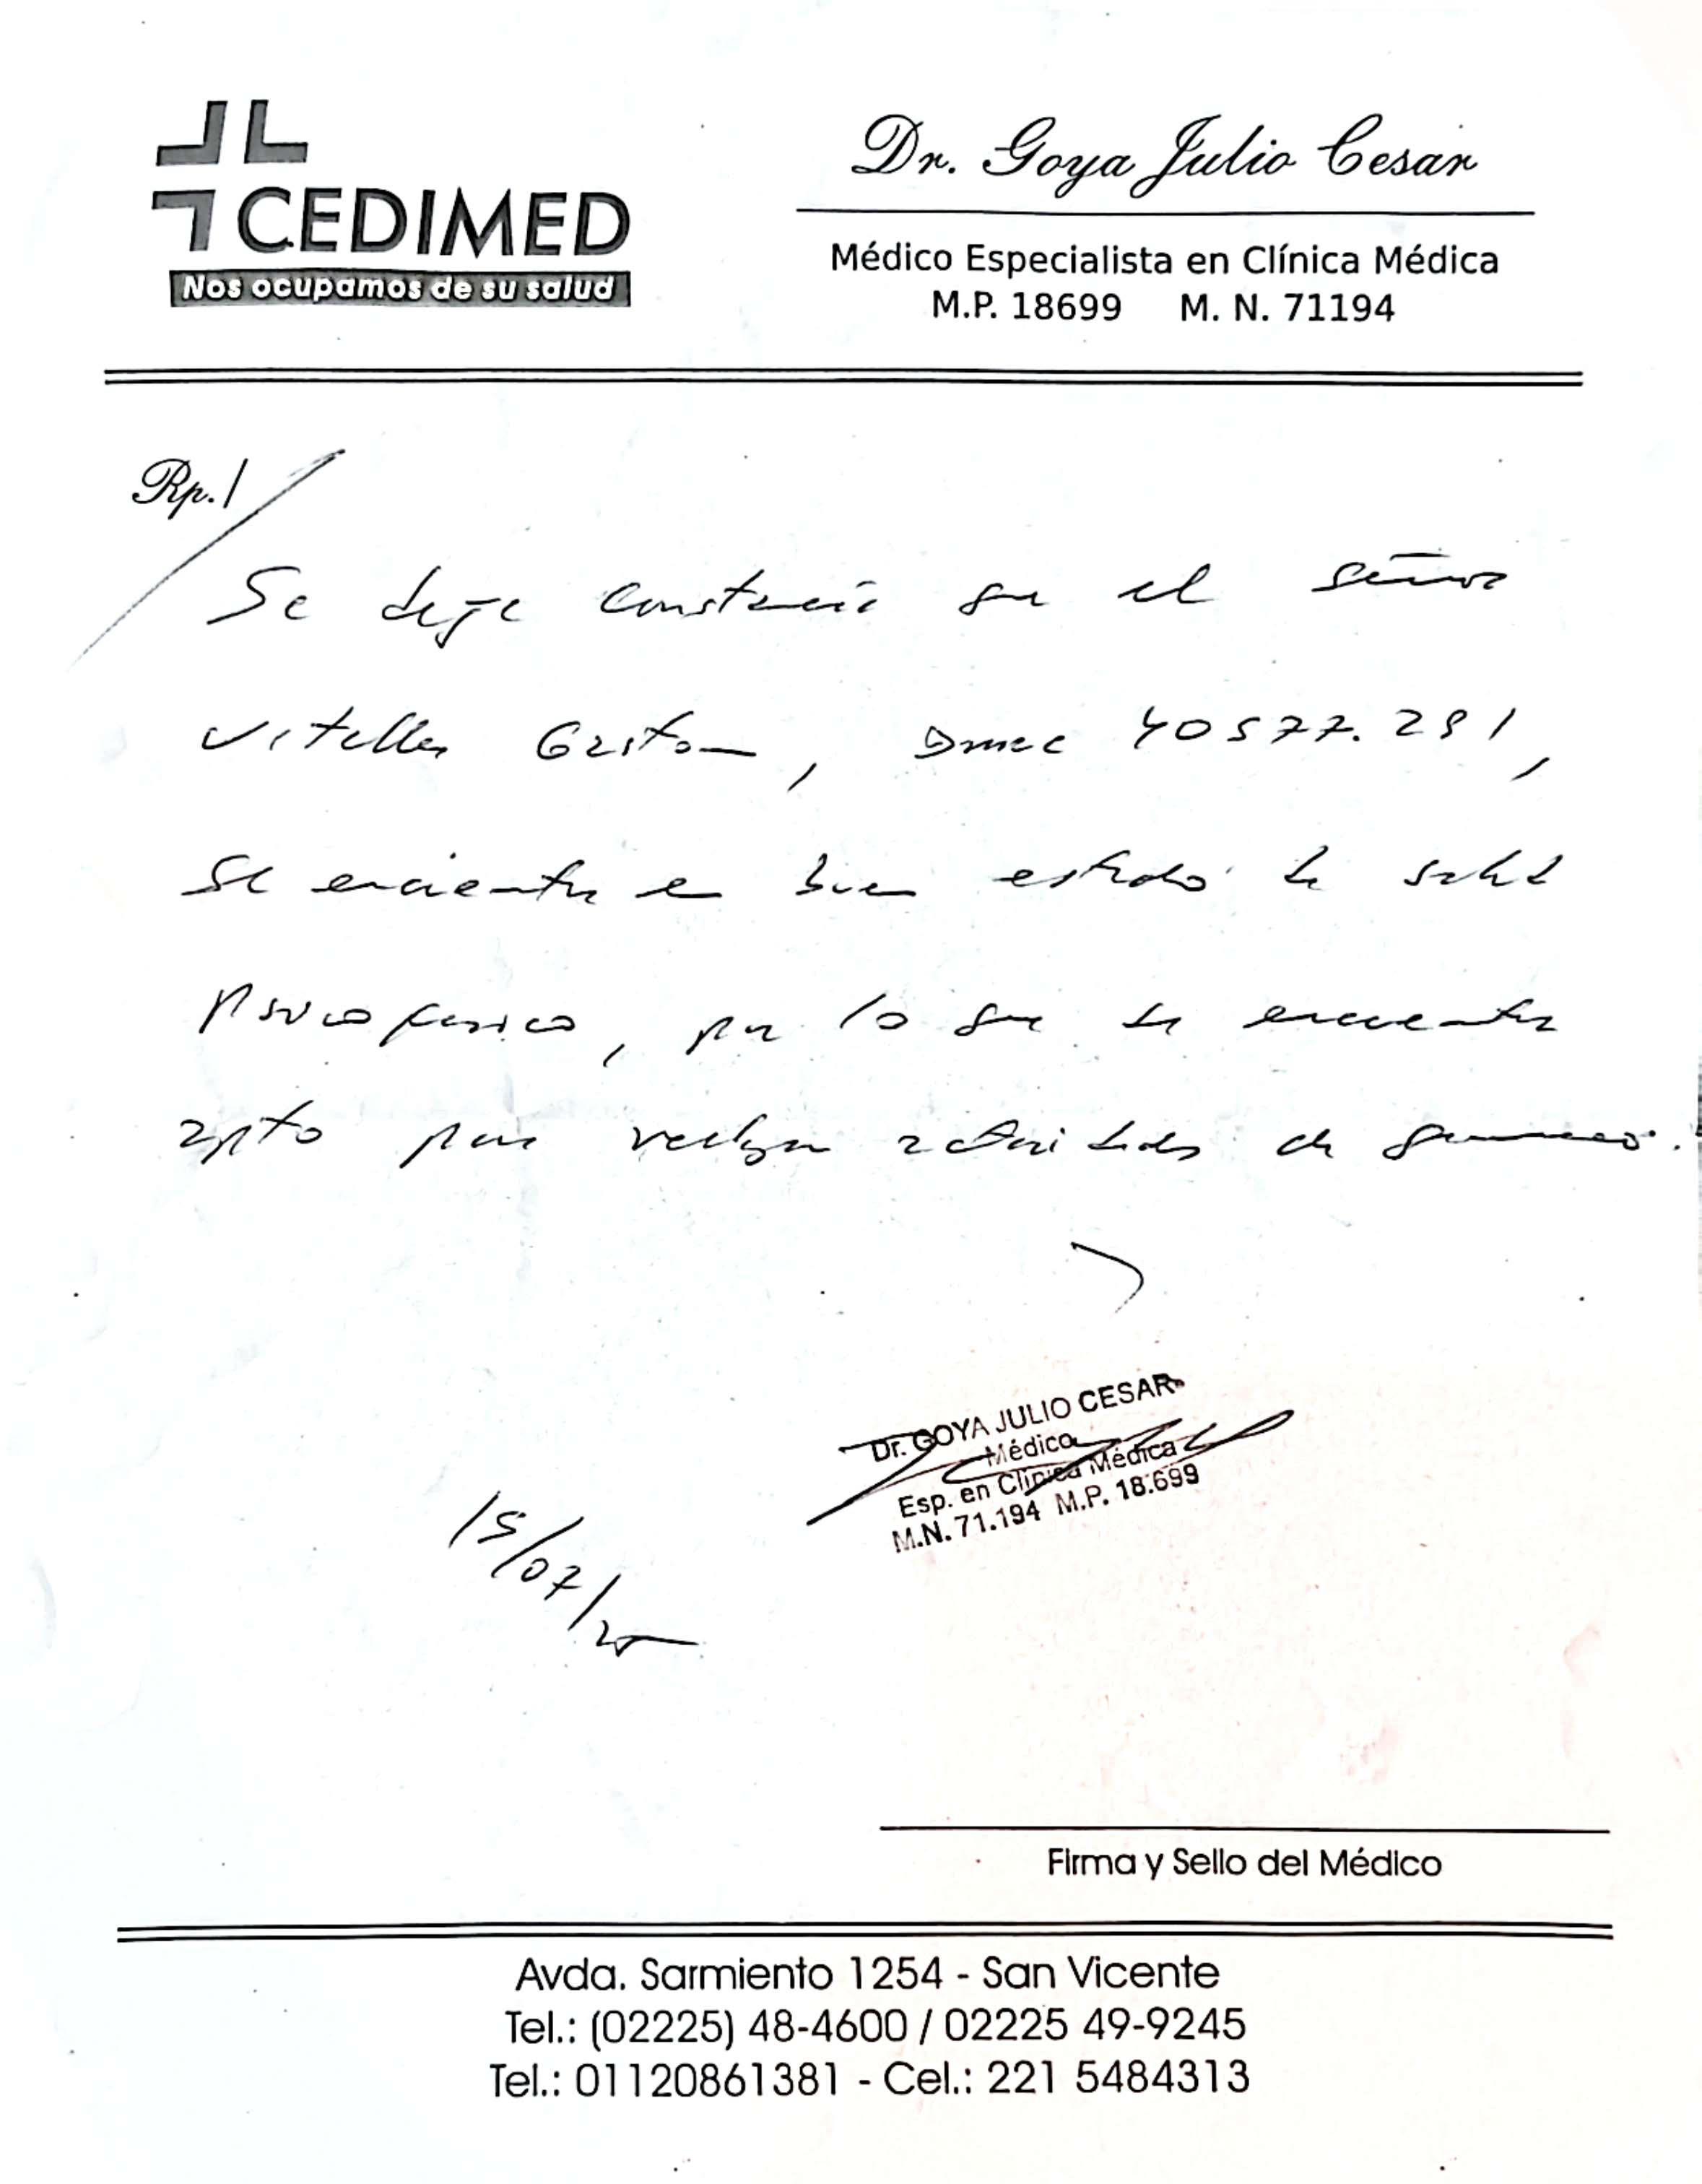 CEDIMED
Nos ocupamos de su salud
Dr. Goya Julio Cesar
Médico Especialista en Clínica Médica
M.P. 18699 M. N. 71194
Rp./
Se deja constancia que el señor
Gaston, 40577.291,
se encuentra en buen estado de salud
psicofisico, por lo que se encuentra
apto para realizar actividades de gimnasio.
Dr. GOYA JULIO CESAR
Médico
Esp. en Clínica Médica
M.N. 71.194 M.P. 18.699
15/07/25
Firma y Sello del Médico
Avda. Sarmiento 1254 - San Vicente
Tel.: (02225) 48-4600 / 02225 49-9245
Tel.: 01120861381 - Cel.: 221 5484313